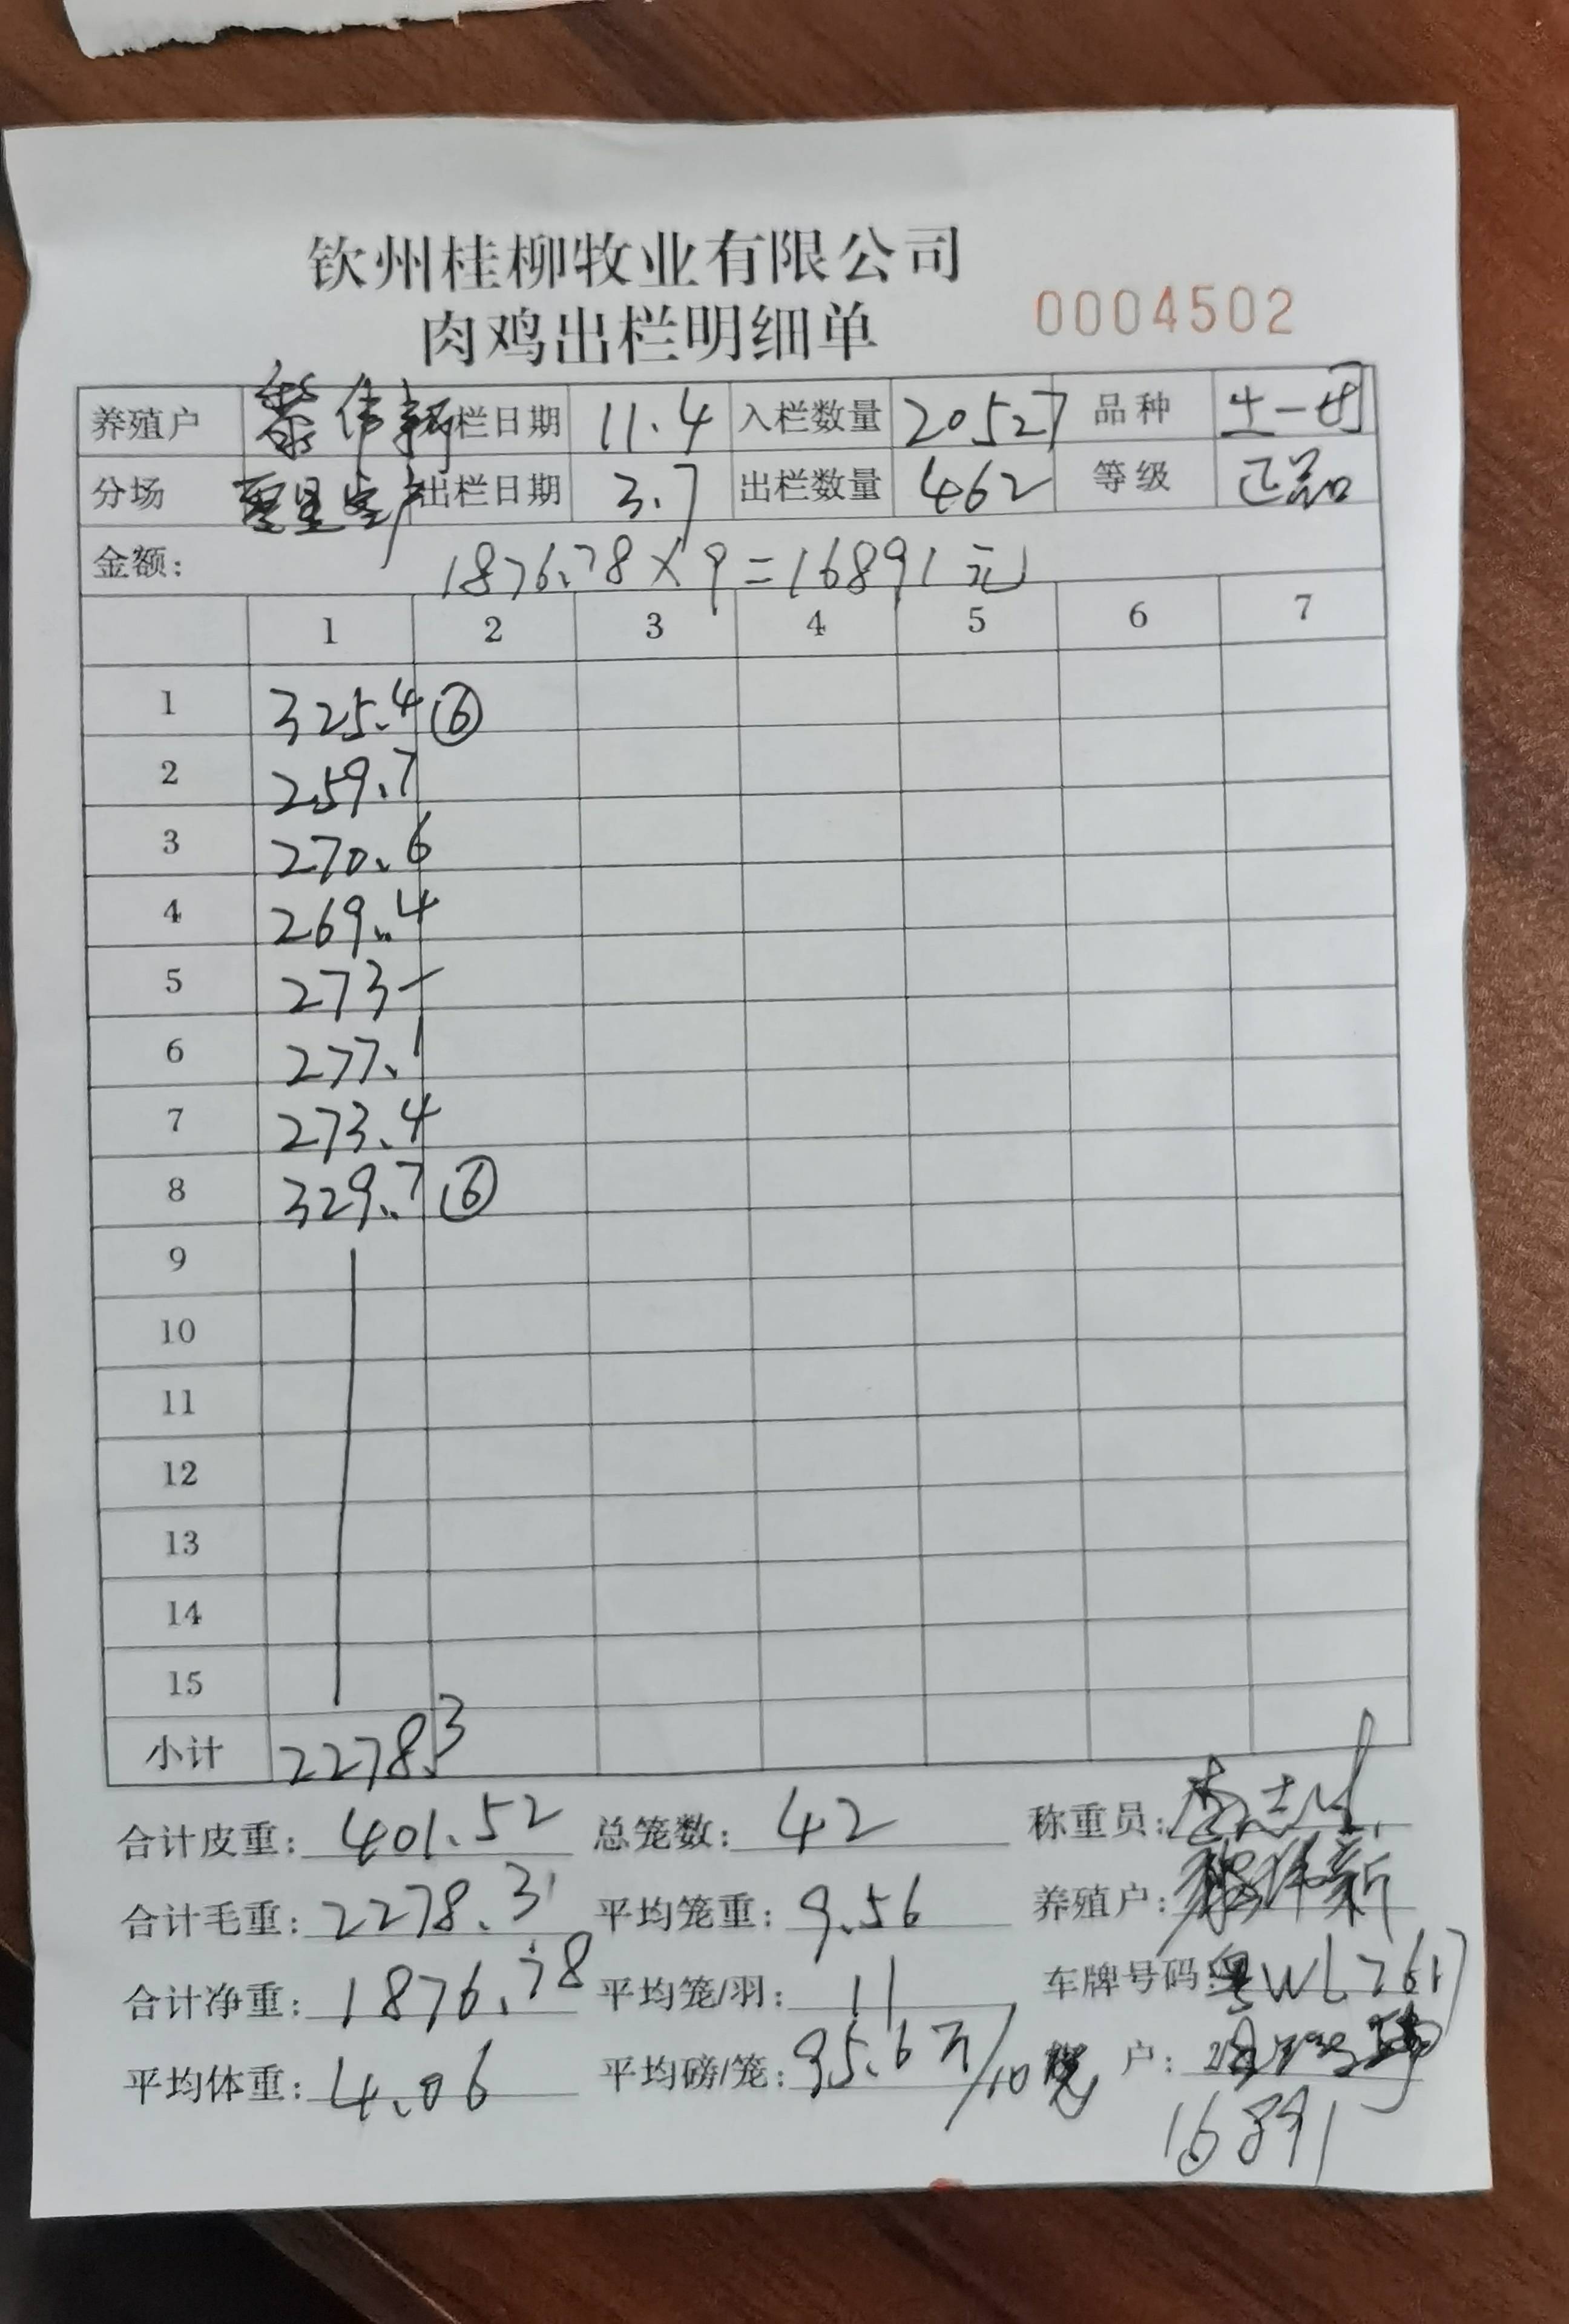 钦州桂柳牧业有限公司
肉鸡出栏明细单 0004502
养殖户 栏日期 11.4 入栏数量 20527 品种 土一
分场 出栏日期 3.7 出栏数量 462 等级 正品
金额: 1876.78×9=16891元
1 2 3 4 5 6 7
1 325.4 ⑥
2 259.7
3 270.6
4 269.4
5 273-
6 277.1
7 273.4
8 329.7 ⑥
9
10
11
12
13
14
15
小计 2278.3
合计皮重: 401.52 总笼数: 42 称重员:
合计毛重: 2278.3 平均笼重: 9.56 养殖户:
合计净重: 1876.78 平均笼/羽: 11 车牌号码: 粤WL7617
平均体重: 4.06 平均磅/笼: 95.6 户:
16891